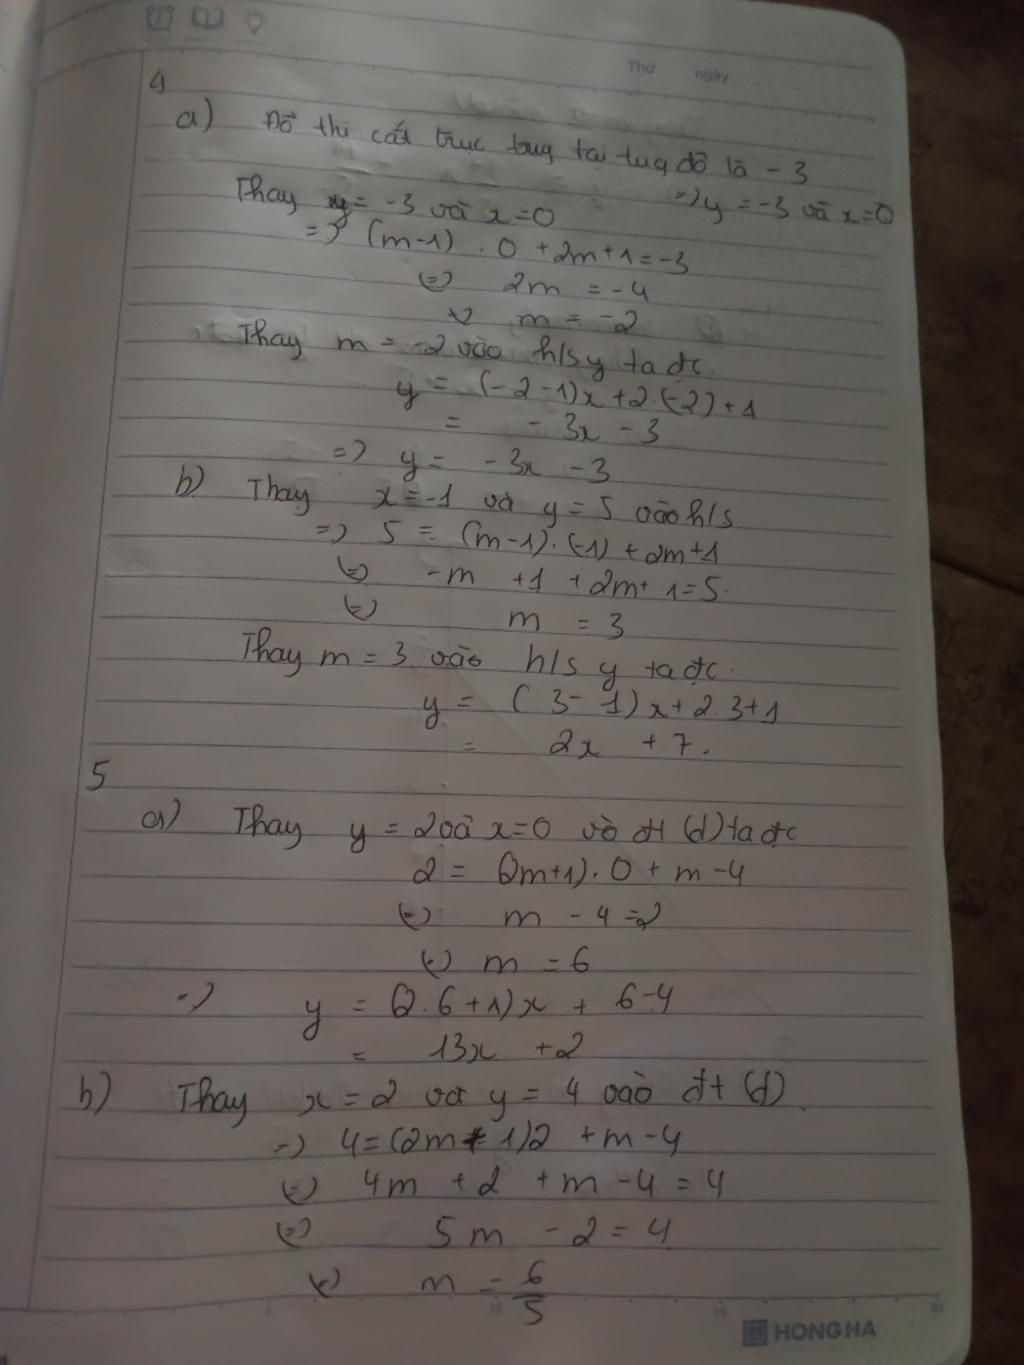 Thứ ngày
4
a) Đồ thị cắt trục tung tại tung độ là -3
=> y = -3 và x=0
Thay y = -3 và x=0
=> (m-1) . 0 + 2m+1 = -3
(=) 2m = -4
(=) m = -2
Thay m = -2 vào h/s y ta đc.
y = (-2-1)x + 2.(-2)+1
= - 3x - 3
=> y = -3x - 3
b) Thay x = -1 và y = 5 vào h/s
=> 5 = (m-1).(-1) + 2m+1
(=) -m +1 + 2m+ 1=5.
(=) m = 3
Thay m = 3 vào h/s y ta đc.
y = (3-1)x + 2.3+1
= 2x + 7.
5
a) Thay y = 2 và x=0 vò đt (d) ta đc
2 = (2m+1).0 + m-4
(=) m - 4 = 2
(=) m = 6
=> y = (2.6+1)x + 6-4
= 13x +2
b) Thay x = 2 và y = 4 vào đt (d).
=> 4=(2m+1)2 +m-4
(=) 4m + 2 + m - 4 = 4
(=) 5m - 2 = 4
(=) m = 6/5
5 10 15 20
HONG HA